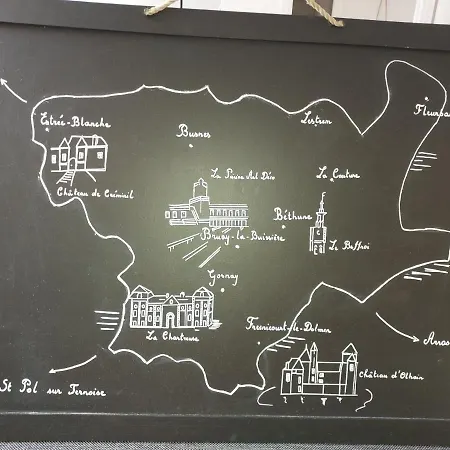 Fleurba
Estrée-Blanche
Busnes
Lestrem
La Piscine Art Déco
La Couture
Château de Créminil
Béthune
Bruay-la-Buissière
Le Beffroi
Gosnay
La Chartreuse
Fresnicourt-le-Dolmen
Arras
Château d'Olhain
St Pol sur Ternoise